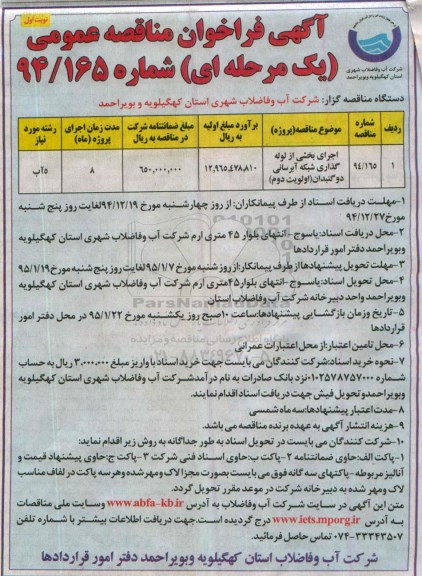 نوبت اول
آگهی فراخوان مناقصه عمومی
(یک مرحله ای) شماره ۹۴/۱۶۵
شرکت آب وفاضلاب شهری
استان کهگیلویه وبویراحمد
دستگاه مناقصه گزار: شرکت آب وفاضلاب شهری استان کهگیلویه و بویراحمد
ردیف شماره مناقصه موضوع مناقصه(پروژه) برآورد مبلغ اولیه به ریال مبلغ ضمانتنامه شرکت در مناقصه به ریال مدت زمان اجرای پروژه (ماه) رشته مورد نیاز
۱ ۹۴/۱۶۵ اجرای بخشی از لوله گذاری شبکه آبرسانی دوگنبدان(اولویت دوم) ۱۲,۹۶۵,۴۷۸,۸۱۰ ۶۵۰,۰۰۰,۰۰۰ ۸ ۵آب
۱-مهلت دریافت اسناد از طرف پیمانکاران: از روز چهارشنبه مورخ ۹۴/۱۲/۱۹لغایت روز پنج شنبه
مورخ۹۴/۱۲/۲۷
۲-محل دریافت اسناد:یاسوج-انتهای بلوار ۴۵ متری ارم شرکت آب وفاضلاب شهری استان کهگیلویه
وبویراحمد دفتر امور قراردادها
۳-مهلت تحویل پیشنهادها از طرف پیمانکار:از روز شنبه مورخ ۹۵/۱/۷لغایت روز پنج شنبه مورخ۹۵/۱/۱۹
۴-محل تحویل اسناد:یاسوج-انتهای بلوار۴۵متری ارم شرکت آب وفاضلاب شهری استان کهگیلویه
وبویراحمد واحد دبیرخانه شرکت آب وفاضلاب استان
۵-تاریخ وزمان بازگشایی پیشنهادها:ساعت ۱۰صبح روز یکشنبه مورخ ۹۵/۱/۲۲ در محل دفتر امور
قراردادها
۶-محل تامین اعتبار:از محل اعتبارات عمرانی
۷-نحوه خرید اسناد:شرکت کنندگان می بایست جهت خرید اسناد با واریز مبلغ ۳,۰۰۰,۰۰۰ ریال به حساب
شماره ۱۰۲۵۷۸۷۵۷۰۰۰نزد بانک صادرات به نام درآمدشرکت آب وفاضلاب شهری استان کهگیلویه
وبویراحمدو تحویل فیش جهت دریافت اسناد اقدام نمایند.
۸-مدت اعتبار پیشنهادها:سه ماه شمسی
۹-هزینه انتشار آگهی به عهده برنده مناقصه می باشد.
۱۰-شرکت کنندگان می بایست در تحویل اسناد به طور جداگانه به روش زیر اقدام نماید:
۱-پاکت الف:حاوی ضمانتنامه ۲-پاکت ب:حاوی اسناد فنی شرکت ۳-پاکت ج:حاوی پیشنهاد قیمت و
آنالیز مربوطه-پاکتهای سه گانه فوق می بایست بصورت مجزا لاک ومهر شده وهر سه پاکت در لفاف مناسب
لاک ومهر شده به دبیرخانه شرکت در موعد مقرر تحویل گردد.
متن این آگهی در سایت شرکت آب وفاضلاب به آدرس www.abfa-kb.ir وسایت ملی مناقصات
به آدرس www.iets.mporg.ir درج گردیده است.جهت دریافت اطلاعات بیشتر با شماره تلفن
۰۷۴-۳۳۳۴۳۵۰۷ تماس حاصل فرمائید.
شرکت آب وفاضلاب استان کهگیلویه وبویراحمد دفتر امور قراردادها